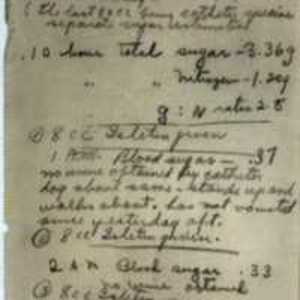 ( the last 20 cc being catheter specimen
separate sugar estimated
10 hour total sugar - 3.36g
" " nitrogen - 1.20g
g : N ratio 2.8
② 8 cc Isletin given
1 A.M. Blood sugar - .37
no urine obtained by catheter
dog about same - stands up and
walks about. has not vomited
since yesterday aft.
③ 8 cc Isletin given.
2 A M Blood sugar .33
no urine obtained
③ 8 cc Isletin